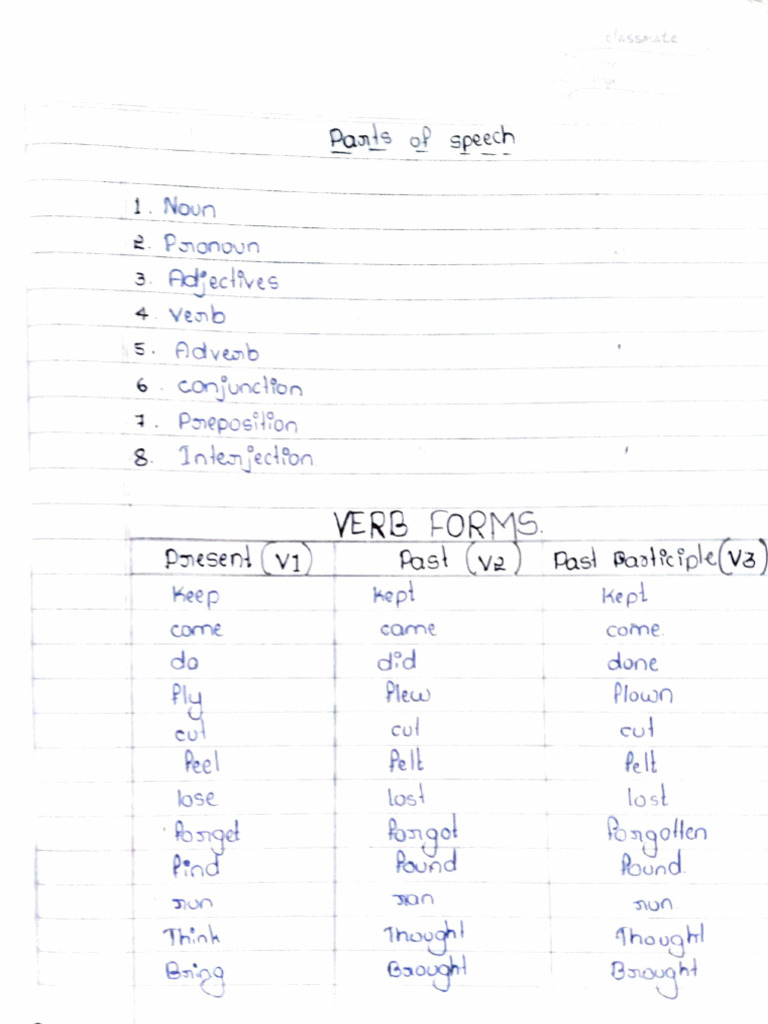 classmate
Parts of speech
1. Noun
2. Pronoun
3. Adjectives
4. Verb
5. Adverb
6. conjunction
7. Preposition
8. Interjection
VERB FORMS.
Present (V1) Past (V2) Past Participle (V3)
Keep Kept Kept
come came come.
do did done
fly flew flown
cut cut cut
feel felt felt
lose lost lost
forget forgot forgotten
find found found.
run ran run
Think Thought Thought
Bring Brought Brought